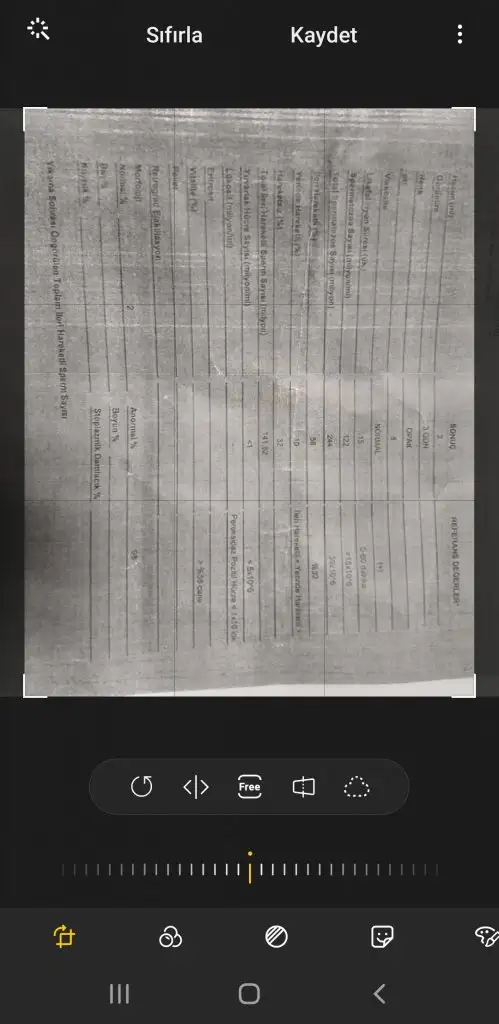 Sıfırla Kaydet
SONUÇ REFERANS DEĞERLER
Hacim (ml) 2
3 GÜN
Renk OPAK
pH 8
Viskozite NORMAL
15 5-60 dakika
Spermatozoa Sayısı (milyon/ml) 122 >15x10^6
Total Spermatozoa Sayısı (milyon) 244
İleri Hareketli (%) 58 %32
Yerinde Hareketli (%) 10 İleri Hareketli + Yerinde Hareketli >
Hareketsiz (%) 32
Total İleri Hareketli Sperm Sayısı (milyon) 141.52
Yuvarlak Hücre Sayısı (milyon/ml) <1 < 5x10^6
Lökosit (milyon/ml) - Peroksidaz Pozitif Hücre < 1x10^6/ml
Vitalite (%) > %58 canlı
Retrograd Ejakülasyon
Morfoloji
Normal % 2 Anormal % 98
Baş % Boyun %
Kuyruk % Stoplazmik Damlacık %
Yıkama Sonrası Öngörülen Toplam İleri Hareketli Sperm Sayısı
Free